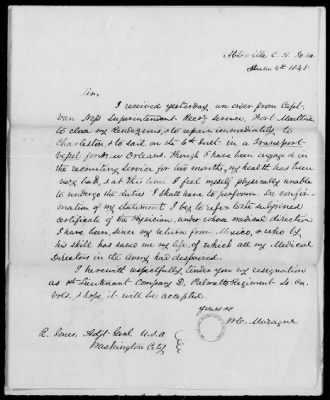 Abbeville C. H. So. Ca.
4th 1848.
Sir,
I received yesterday an order from Capt.
Van Ness Superintendent Recg Service, Fort Moultrie
to close my Rendezvous, & to repair immediately to
Charleston, & to sail on the 6th Inst. in a Transport-
vessel for New Orleans. Though I have been engaged in
the recruiting service for two months, my health has been
very bad, & at this time I feel myself physically unable
to undergo the duties I shall have to perform. In confir-
mation of my statement I beg to refer to the subjoined
certificate of the Physician, under whose medical direction
I have been, since my return from Mexico, & who by
his skill has saved me my life, of which all my Medical
Directors in the Army had despaired.
I herewith respectfully, tender you my resignation
as 1st Lieutenant Company D. Palmetto Regiment So. Ca.
Vols. I hope it will be accepted.
Yours &c
W. C. Moragne
R. Jones, Adjt. Genl. U.S.A
Washington City